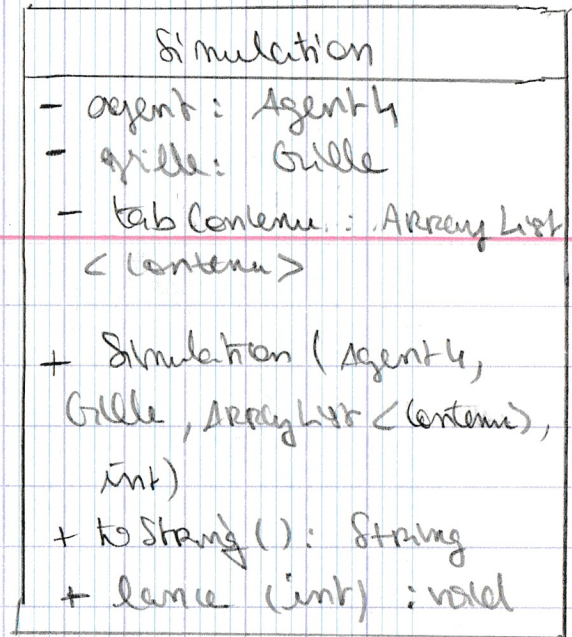 Simulation
- agent : Agent4
- grille : Grille
- tabContenu : ArrayList
<Contenu>
+ Simulation (Agent4,
Grille, ArrayList <Contenu>,
int)
+ toString () : String
+ lance (int) : void